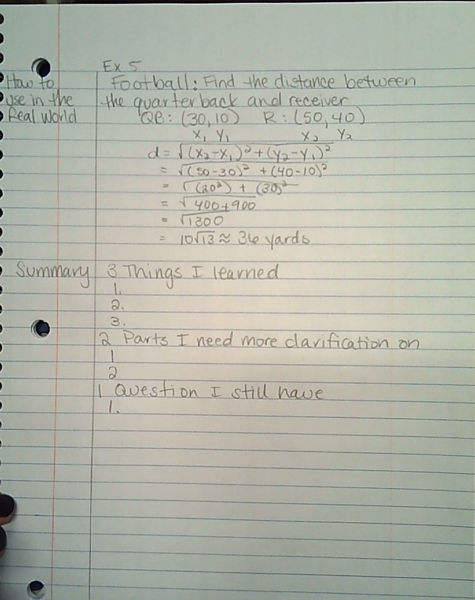 Ex 5
How to use in the Real World
Football: Find the distance between
the quarterback and receiver
QB: (30,10) R: (50,40)
x₁ y₁ x₂ y₂
d = √(x₂-x₁)² + (y₂-y₁)²
= √(50-30)² + (40-10)²
= √(20²) + (30)²
= √400+900
= √1300
= 10√13 ≈ 36 yards
Summary
3 Things I learned
1.
2.
3.
2 Parts I need more clarification on
1
2
1 Question I still have
1.